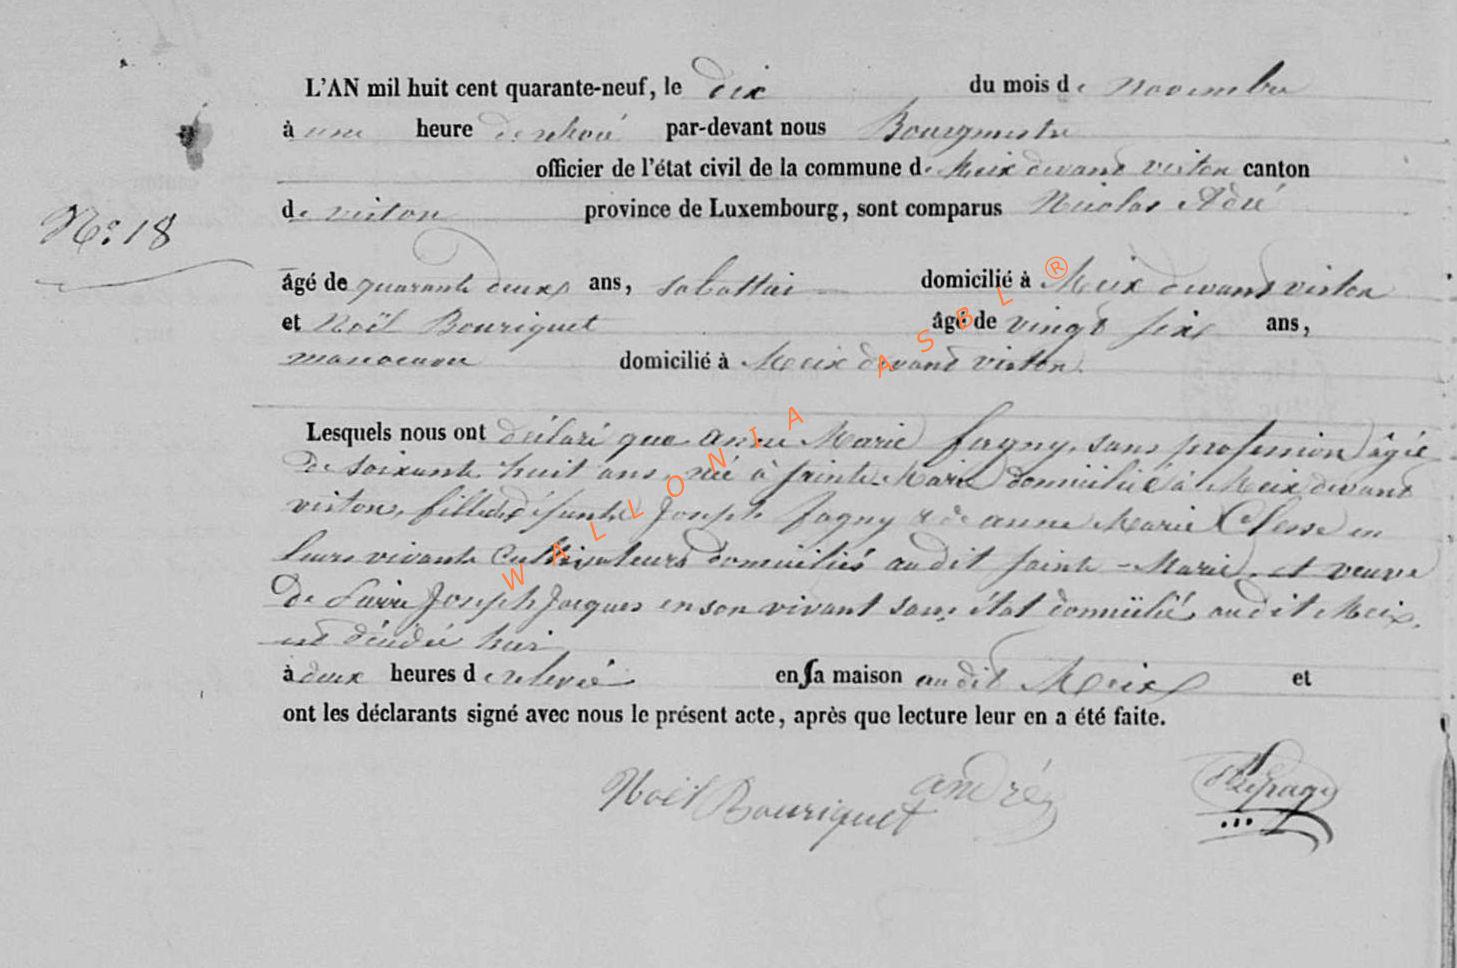 L'AN mil huit cent quarante-neuf, le dix du mois de novembre
à une heure de relevé par-devant nous Bourgmestre
officier de l'état civil de la commune de Meix devant virton canton
de virton province de Luxembourg, sont comparus Nicolas
N° 18
âgé de quarante deux ans, domicilié à Meix devant virton
et Noël Bouriquet âgé de vingt six ans,
manoeuvre domicilié à Meix devant virton.
Lesquels nous ont déclaré que anne Marie fagny, sans profession âgée
de soixante huit ans, née à Sainte-Marie domiciliée à Meix devant
virton, fille de défunts Joseph fagny & de anne Marie en
leurs vivants Cultivateurs domiciliés au dit Sainte-Marie, et veuve
de Joseph Jacques en son vivant sans état domicilié au dit Meix,
est décédée hier
à deux heures de relevée en sa maison au dit Meix et
ont les déclarants signé avec nous le présent acte, après que lecture leur en a été faite.
Noël Bouriquet andré
WALLONIA ASBL ®